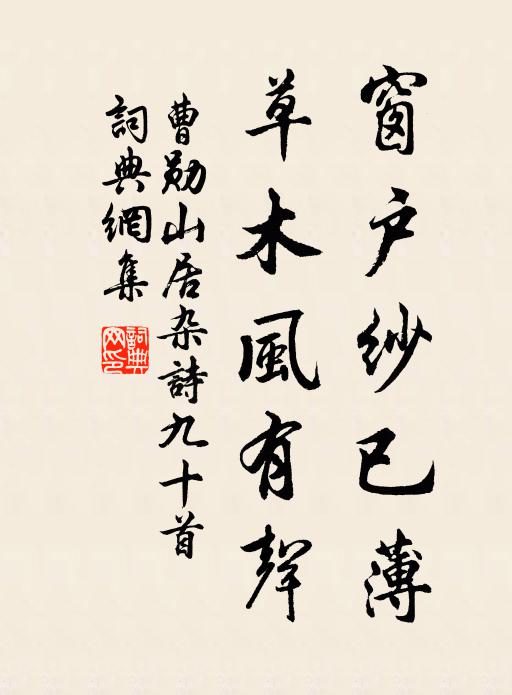 窗戶紗已薄
草木風有聲
曹勛山居杂詩九十首
詞典網集
詞典網印